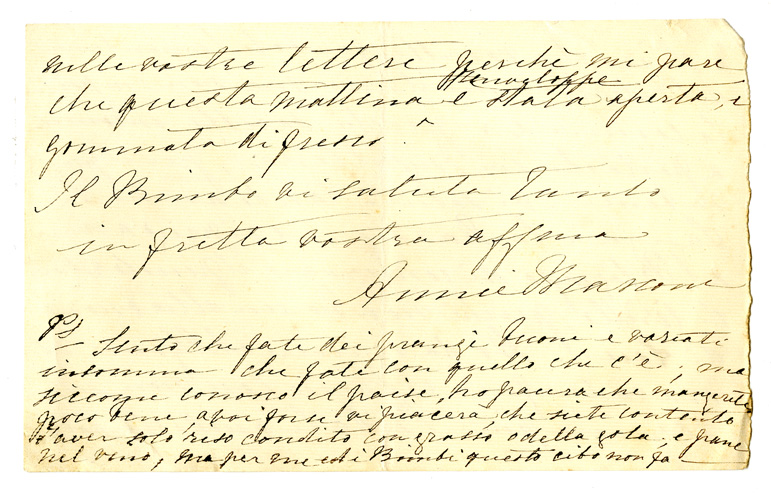 nelle vostre lettere perchè mi pare
l'envagloppe
che questa mattina è stata aperta, e
gommata di fresco
Il Bimbo vi saluta tanto
in fretta vostra affma
Annie
Ps Sento che fate dei pranzi buoni e variati
insomma che fate con quello che c'è, ma
siccome conosco il paise, ho paura che mangerete
poco bene, a voi forse vi piacerà, che siete contento
d'aver solo riso condito con grasso o della gola, e pane
nel vino, ma per me ed i Bimbi questo cibo non fa